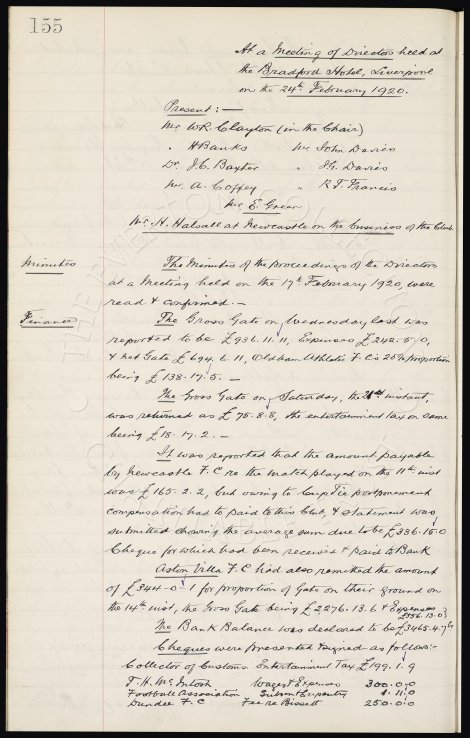 155
At a Meeting of Directors held at
the Bradford Hotel, Liverpool
on the 24th February 1920.
Present:—
Mr. W.R. Clayton (in the Chair)
" H Banks Mr. John Davies
Dr. J.C. Baxter " J.G. Davies
Mr. A. Coffey " R.T. Francis
Mr E. Green
Mr. H. Halsall at Newcastle on the business of the Club
Minutes The Minutes of the proceedings of the Directors
at a Meeting held on the 17th February 1920, were
read & confirmed.—
Finance The Gross Gate on Wednesday last was
reported to be £936.11.11, Expenses £242.5.0,
& net Gate £694.6.11, Oldham Athletic F.C's 20% proportion
being £138.17.5.—
The Gross Gate on Saturday, the 21st instant,
was returned as £75.8.8, the entertainment tax on same
being £18.17.2.—
It was reported that the amount payable
by Newcastle F.C re the match played on the 11th inst
was £165.2.2, but owing to Cup Tie postponement
compensation had to paid to this Club, & statement was
submitted showing the average sum due to be £336.15.0
Cheque for which had been received & paid to Bank
Aston Villa F.C had also remitted the amount
of £344-0-1 for proportion of Gate on their ground on
the 14th inst, the Gross Gate being £2276.13.6 & Expenses
£556.13.0
The Bank Balance was declared to be £3465.4.7
Cheques were presented & signed as follows:-
Collector of Customs Entertainment Tax £199.1.9
T.H. McIntosh Wages & Expenses 300.0.0
Football Association 1.11.0
Dundee F.C Fee re Bissett 250.0.0